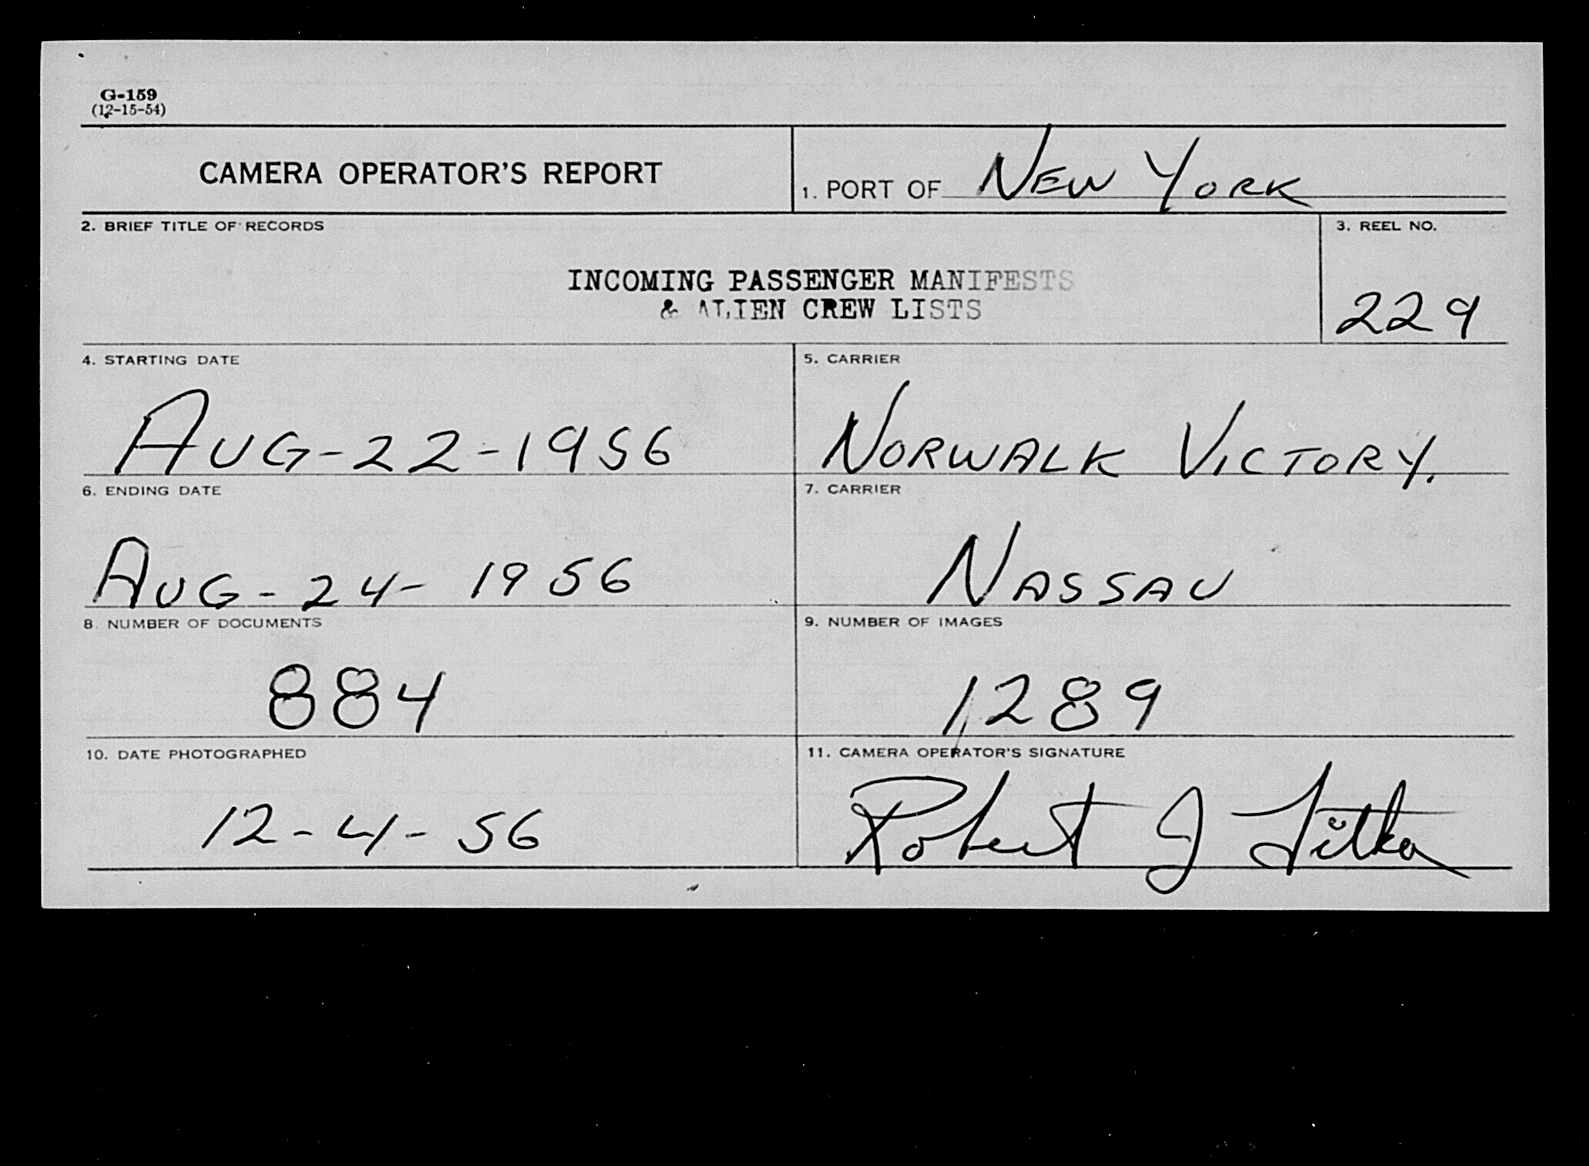 G-159
(12-15-54)
CAMERA OPERATOR'S REPORT
1. PORT OF NEW YORK
2. BRIEF TITLE OF RECORDS
INCOMING PASSENGER MANIFESTS
& ALIEN CREW LISTS
3. REEL NO.
229
4. STARTING DATE
AUG-22-1956
5. CARRIER
NORWALK VICTORY.
6. ENDING DATE
AUG-24-1956
7. CARRIER
NASSAU
8 NUMBER OF DOCUMENTS
884
9. NUMBER OF IMAGES
1289
10. DATE PHOTOGRAPHED
12-4-56
11. CAMERA OPERATOR'S SIGNATURE
Robert J